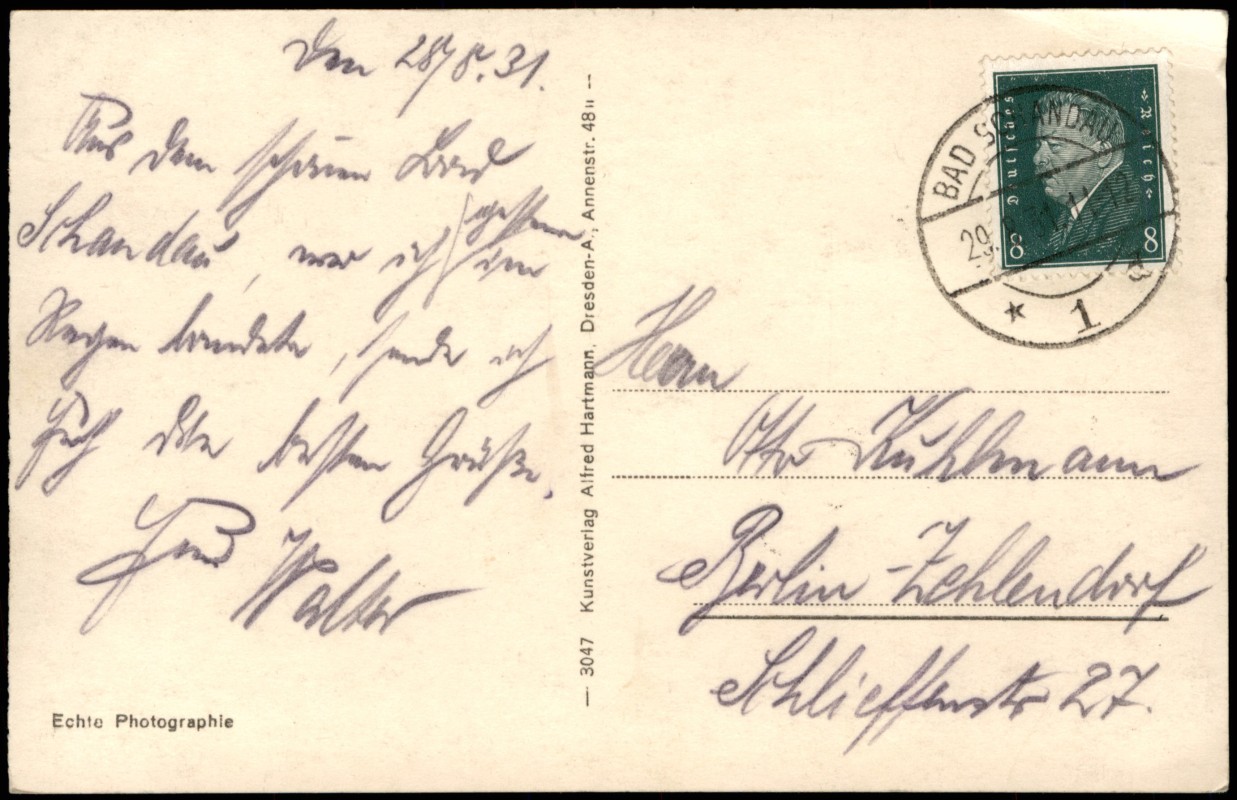 Den 28/8.31.
Aus dem schönen Bad
Schandau, wo ich gestern im
Regen landete, sende ich
Euch die besten Grüße.
Euer Walter
Echte Photographie
3047 Kunstverlag Alfred Hartmann, Dresden-A., Annenstr. 48 II
Deutsches Reich
8 8
BAD SCHANDAU
29.8.31.11-12
* 1 d
Herrn
Otto Kuhlmann
Berlin-Zehlendorf
Schlieffenstr 27.